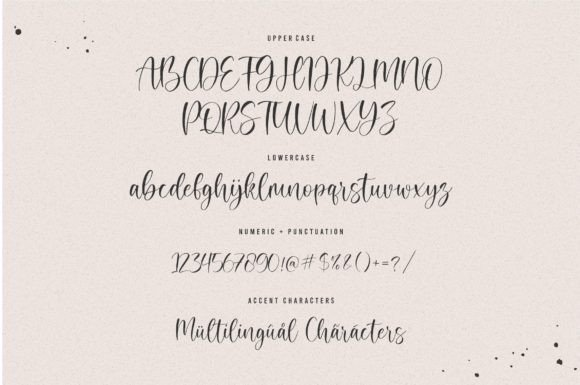 UPPER CASE
ABCDEFGHIJKLMNO
PQRSTUVWXYZ
LOWERCASE
abcdefghijklmnopqrstuvwxyz
NUMERIC + PUNCTUATION
1234567890!@#$%&()+=?/
ACCENT CHARACTERS
Mültilingúål Chäràcters